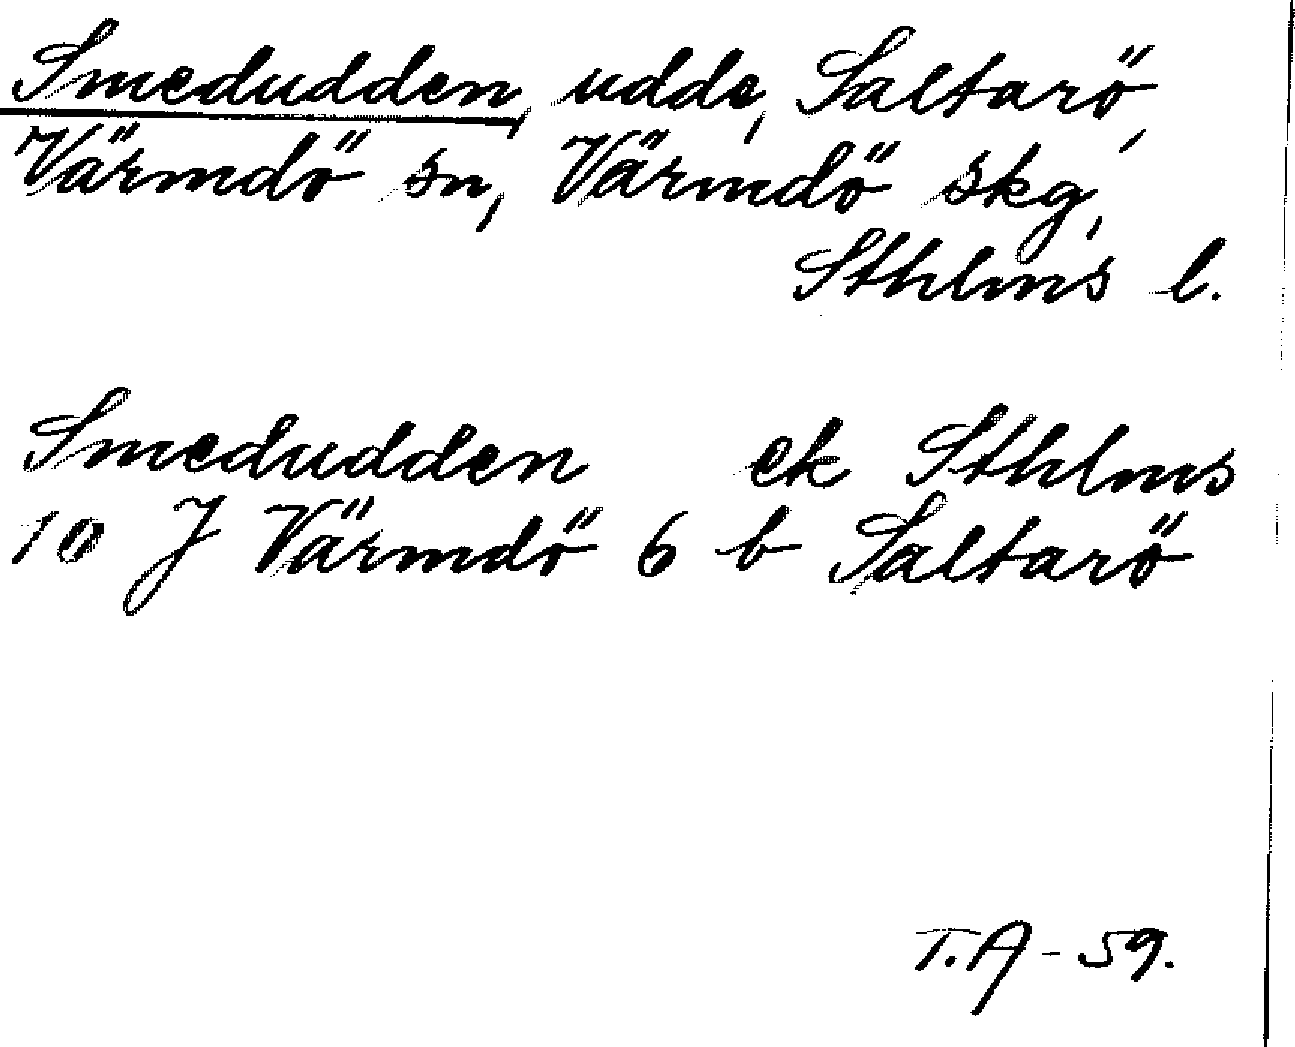 Smedudden, udde, Saltarö,
Värmdö sn, Värmdö skg,
Sthlms l.
Smedudden ek Sthlms
10 J Värmdö 6 b Saltarö
T.A - 59.